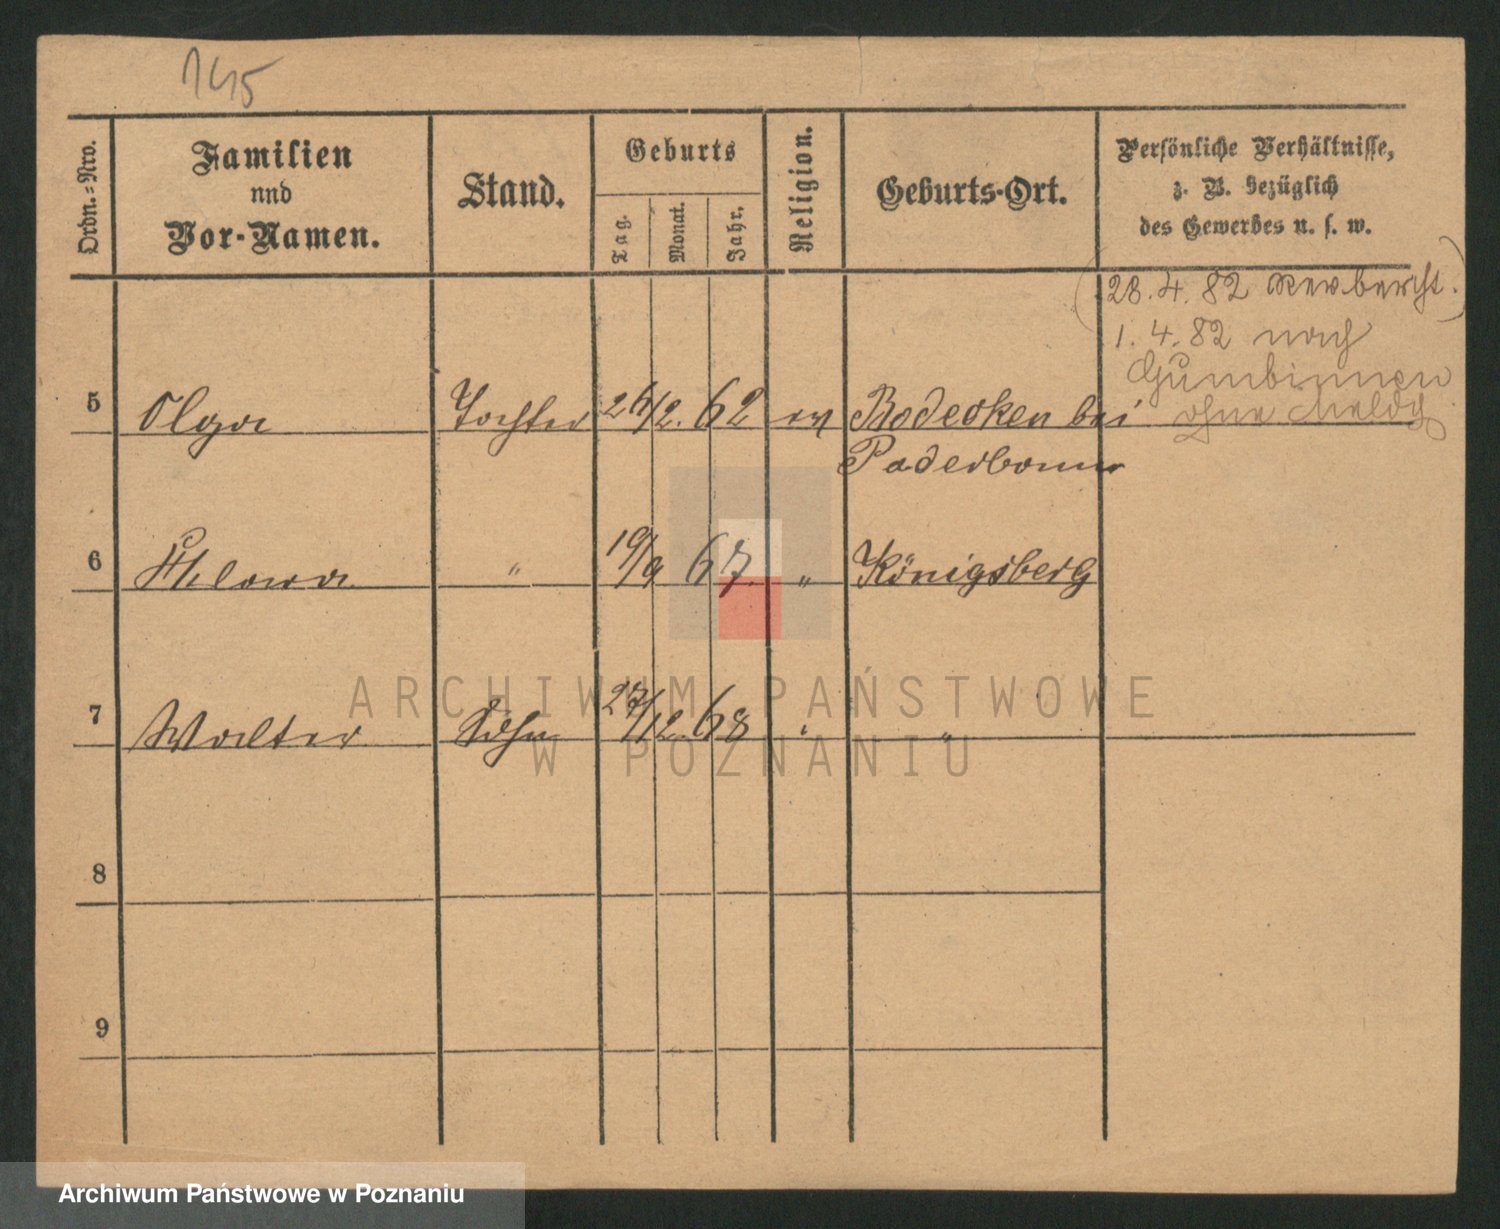 145
Ordn.=Nro.
Familien
und
Vor-Namen.
Stand.
Geburts
Tag.
Monat.
Jahr.
Religion.
Geburts-Ort.
Persönliche Verhältnisse,
z. B. bezüglich
des Gewerbes u. s. w.
(28. 4. 82
1. 4. 82 nach
Gumbinnen
ohne Meldg.
5 Olga Tochter 26/2. 62 ev Bodecken bei
Paderborn
6 " 19/9 67. " Königsberg
7 Walter Sohn 27/12. 68 " "
8
9
ARCHIWUM PAŃSTWOWE
W POZNANIU
Archiwum Państwowe w Poznaniu